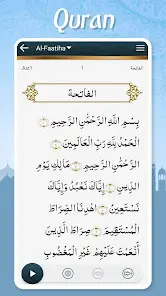 Quran
Al-Faatiha
1
الفاتحة
الفاتحة
بِسْمِ اللَّهِ الرَّحْمَٰنِ الرَّحِيمِ ۝١
الْحَمْدُ لِلَّهِ رَبِّ الْعَالَمِينَ ۝٢
الرَّحْمَٰنِ الرَّحِيمِ ۝٣ مَالِكِ يَوْمِ
الدِّينِ ۝٤ إِيَّاكَ نَعْبُدُ وَإِيَّاكَ
نَسْتَعِينُ ۝٥ اهْدِنَا الصِّرَاطَ
الْمُسْتَقِيمَ ۝٦ صِرَاطَ الَّذِينَ
أَنْعَمْتَ عَلَيْهِمْ غَيْرِ الْمَغْضُوبِ